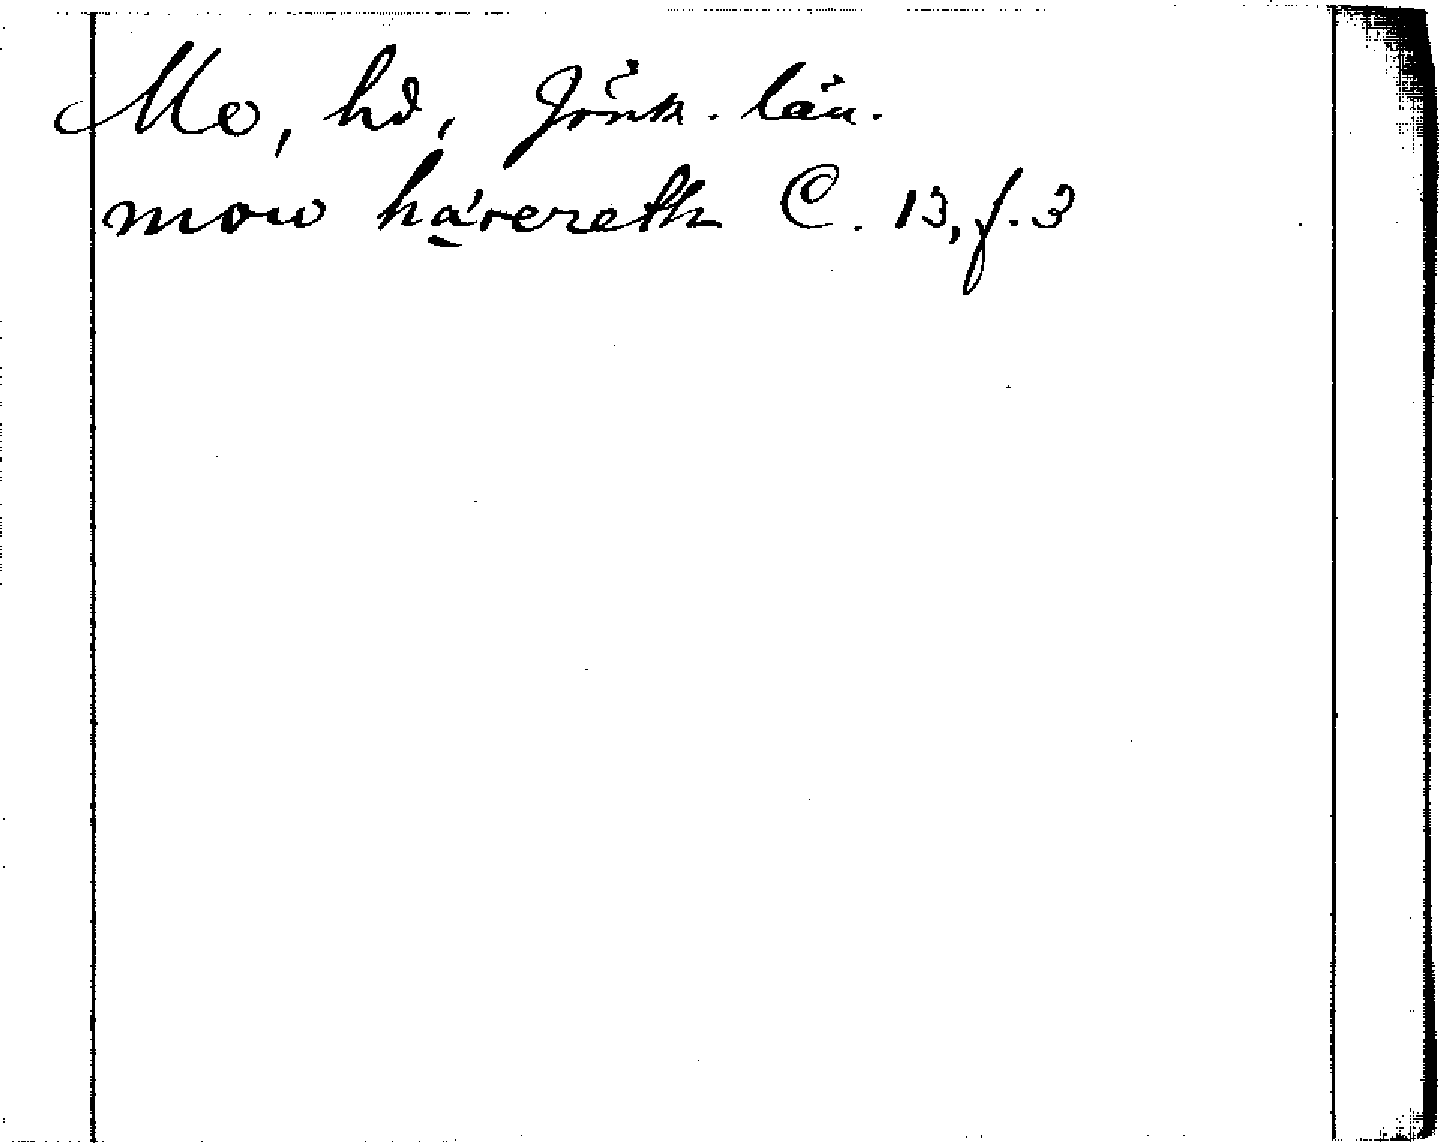 Mo, hd, Jönk. län.
mow häreret͟h C. 13, f. 3